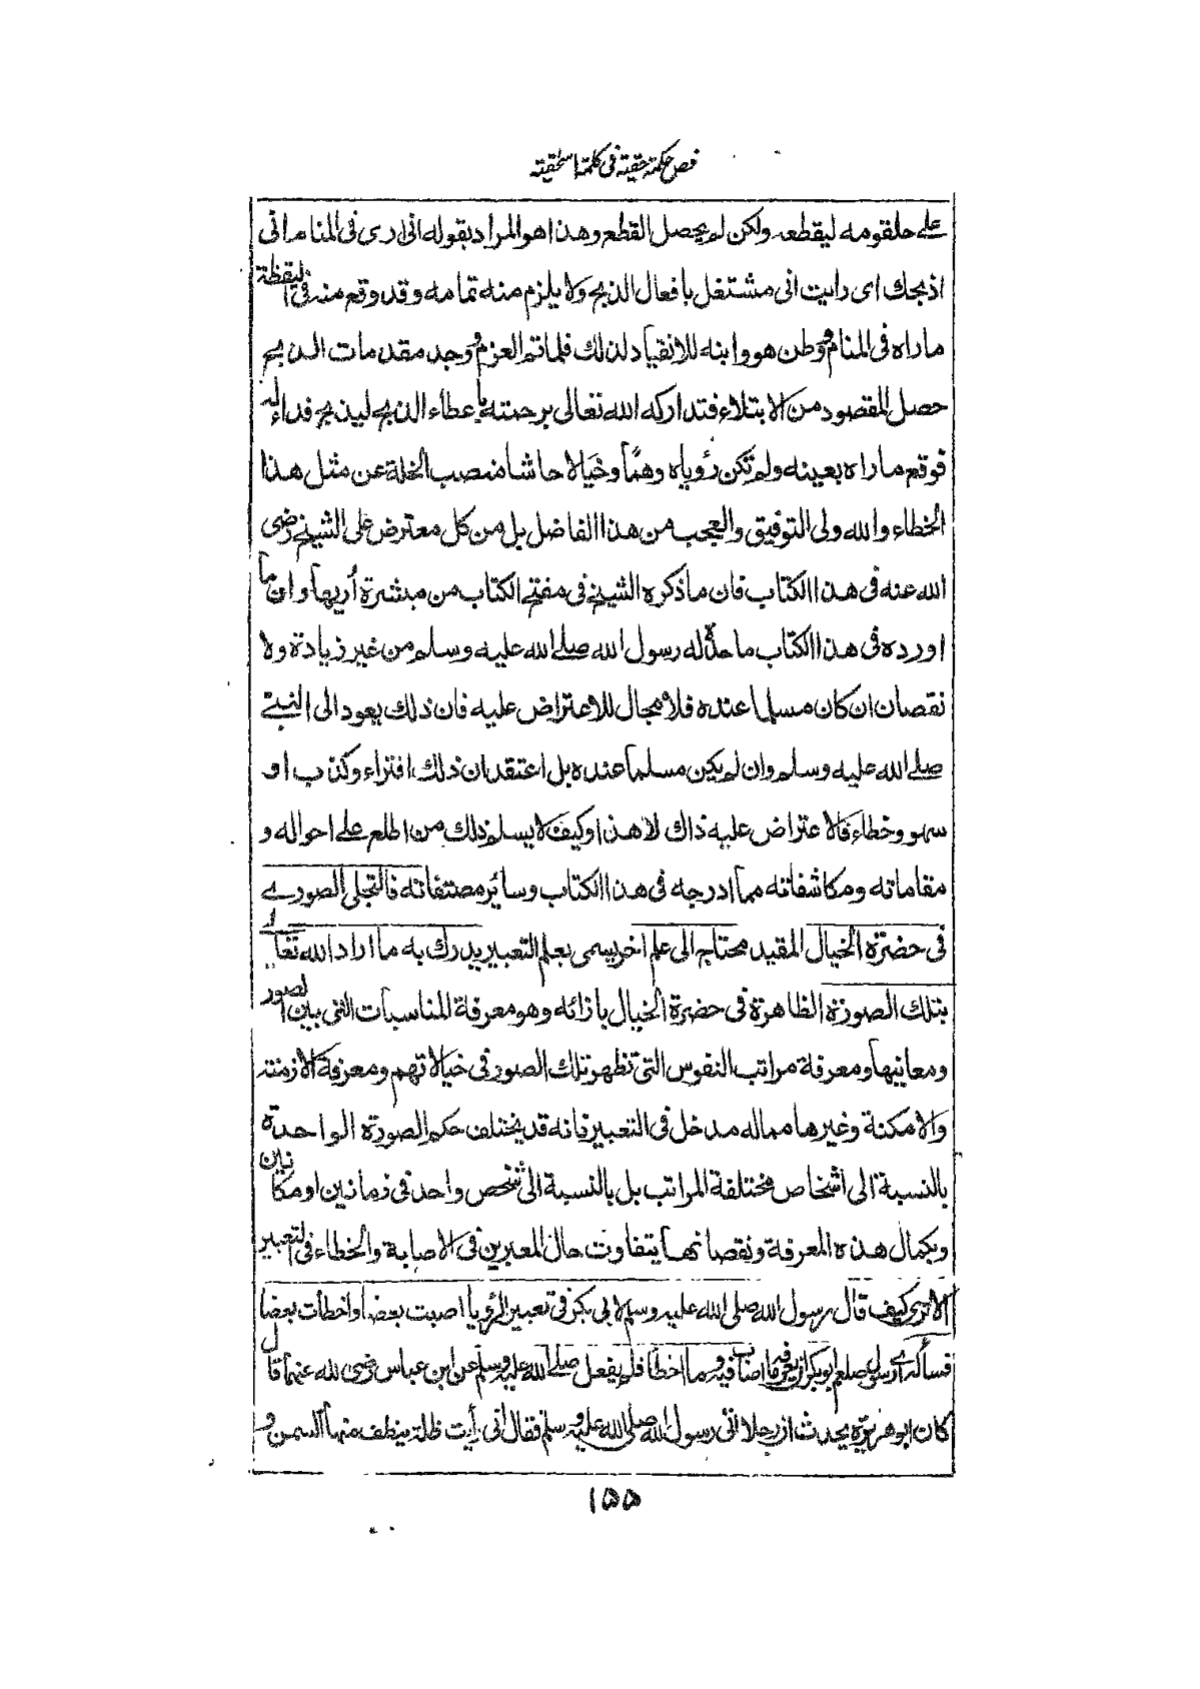 فص حكمة حقية في كلمة اسحٰقية
على حلقومه ليقطعه ولكن لم يحصل القطع وهذا هو المراد بقوله انى ارى فى المنام انى
اذبحك اى رايت انى مشتغل بافعال الذبح ولا يلزم منه تمامه وقد وقع منه فى اليقظة
ماراه فى المنام ووطن هو وابنه للانقياد لذلك فلما تم العزم ووجد مقدمات الذبح
حصل المقصود من الابتلاء فتداركه الله تعالى برحمته باعطاء الذبح ليذبح فداء له
فوقع ماراه بعينه ولم تكن رؤياه وهمًا وخيالا حاشا منصب الخلة عن مثل هذا
الخطاء والله ولى التوفيق والعجب من هذا الفاضل بل من كل معترض على الشيخ رضى
الله عنه فى هذا الكتاب فان ما ذكره الشيخ فى مفتتح الكتاب من مبشرة أريها وان ما
اورده فى هذا الكتاب ما حدّه له رسول الله صلى الله عليه وسلم من غير زيادة ولا
نقصان ان كان مسلما عنده فلا مجال للاعتراض عليه فان ذلك يعود الى النبى
صلى الله عليه وسلم وان لم يكن مسلما عنده بل اعتقد ان ذلك افتراء وكذب او
سهو وخطاء فالاعتراض عليه ذاك لا هذا وكيف لا يسلم ذلك من اطلع على احواله و
مقاماته ومكاشفاته مما ادرجه فى هذا الكتاب وسائر مصنفاته فالتجلى الصورى
فى حضرة الخيال المقيد محتاج الى علم اخر يسمى بعلم التعبير يدرك به ما اراد الله تعالى
بتلك الصورة الظاهرة فى حضرة الخيال بازائه وهو معرفة المناسبات التى بين الصور
ومعانيها ومعرفة مراتب النفوس التى تظهر تلك الصور فى خيالاتهم ومعرفة الازمنة
والامكنة وغيرها مما له مدخل فى التعبير فانه قد يختلف حكم الصورة الواحدة
بالنسبة الى اشخاص مختلفة المراتب بل بالنسبة الى شخص واحد فى زمانين او مكانين
وبكمال هذه المعرفة ونقصانها يتفاوت حال المعبرين فى الاصابة والخطاء فى التعبير
الا ترى كيف قال رسول الله صلى الله عليه وسلم لابى بكر فى تعبير الرؤيا اصبت بعضا واخطأت بعضا
فسأله اى رسول صلعم ابوبكر ان يعرفه ما اصاب فيه وما اخطأ فلم يفعل صلى الله عليه وسلم عن ابن عباس رضى الله عنهما قال
كان ابوهريرة يحدث ان رجلا اتى رسول الله صلى الله عليه وسلم فقال انى رأيت ظلة ينطف منها السمن و
١٥٥